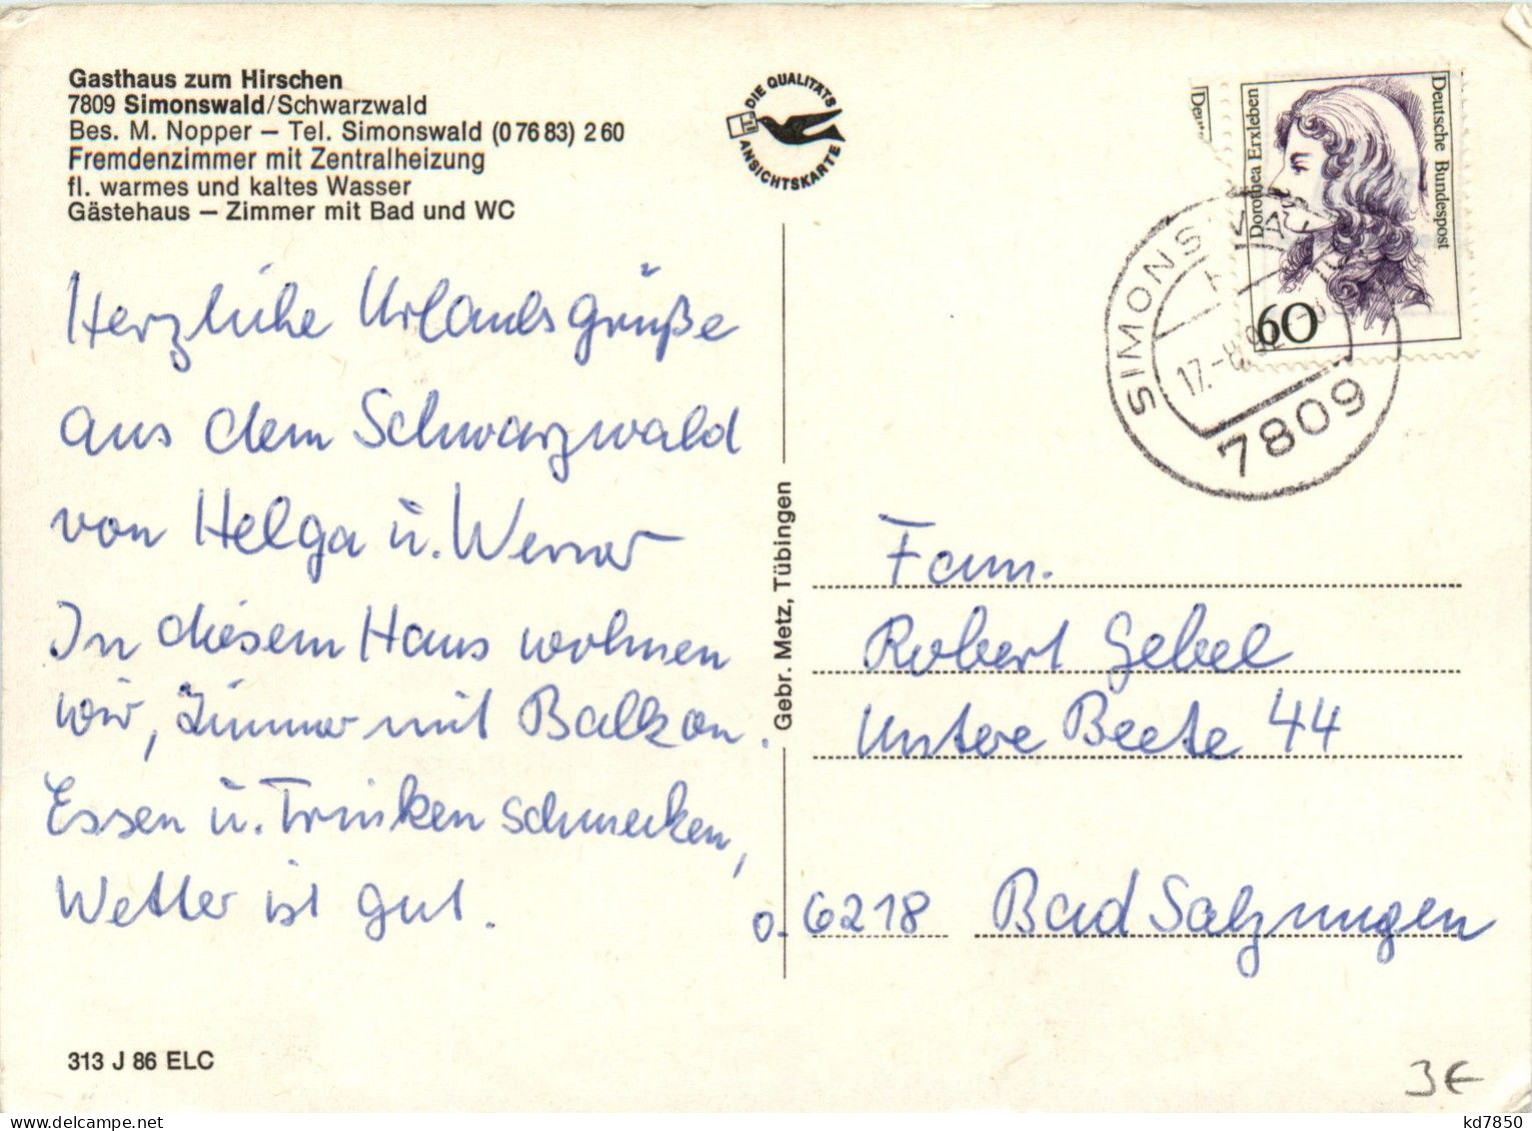 Gasthaus zum Hirschen
7809 Simonswald/Schwarzwald
Bes. M. Nopper – Tel. Simonswald (0 76 83) 2 60
Fremdenzimmer mit Zentralheizung
fl. warmes und kaltes Wasser
Gästehaus – Zimmer mit Bad und WC
DIE QUALITÄTS
ANSICHTSKARTE
Deutsche Bundespost
Dorothea Erxleben
60
SIMONSWALD
17.-8.92
7809
Herzliche Urlaubsgrüße
aus dem Schwarzwald
von Helga u. Werner
In diesem Haus wohnen
wir, Zimmer mit Balkon.
Essen u. Trinken schmecken,
Wetter ist gut.
Gebr. Metz, Tübingen
Fam.
Robert Gebel
Untere Beete 44
O-6218 Bad Salzungen
313 J 86 ELC
3€
kd7850